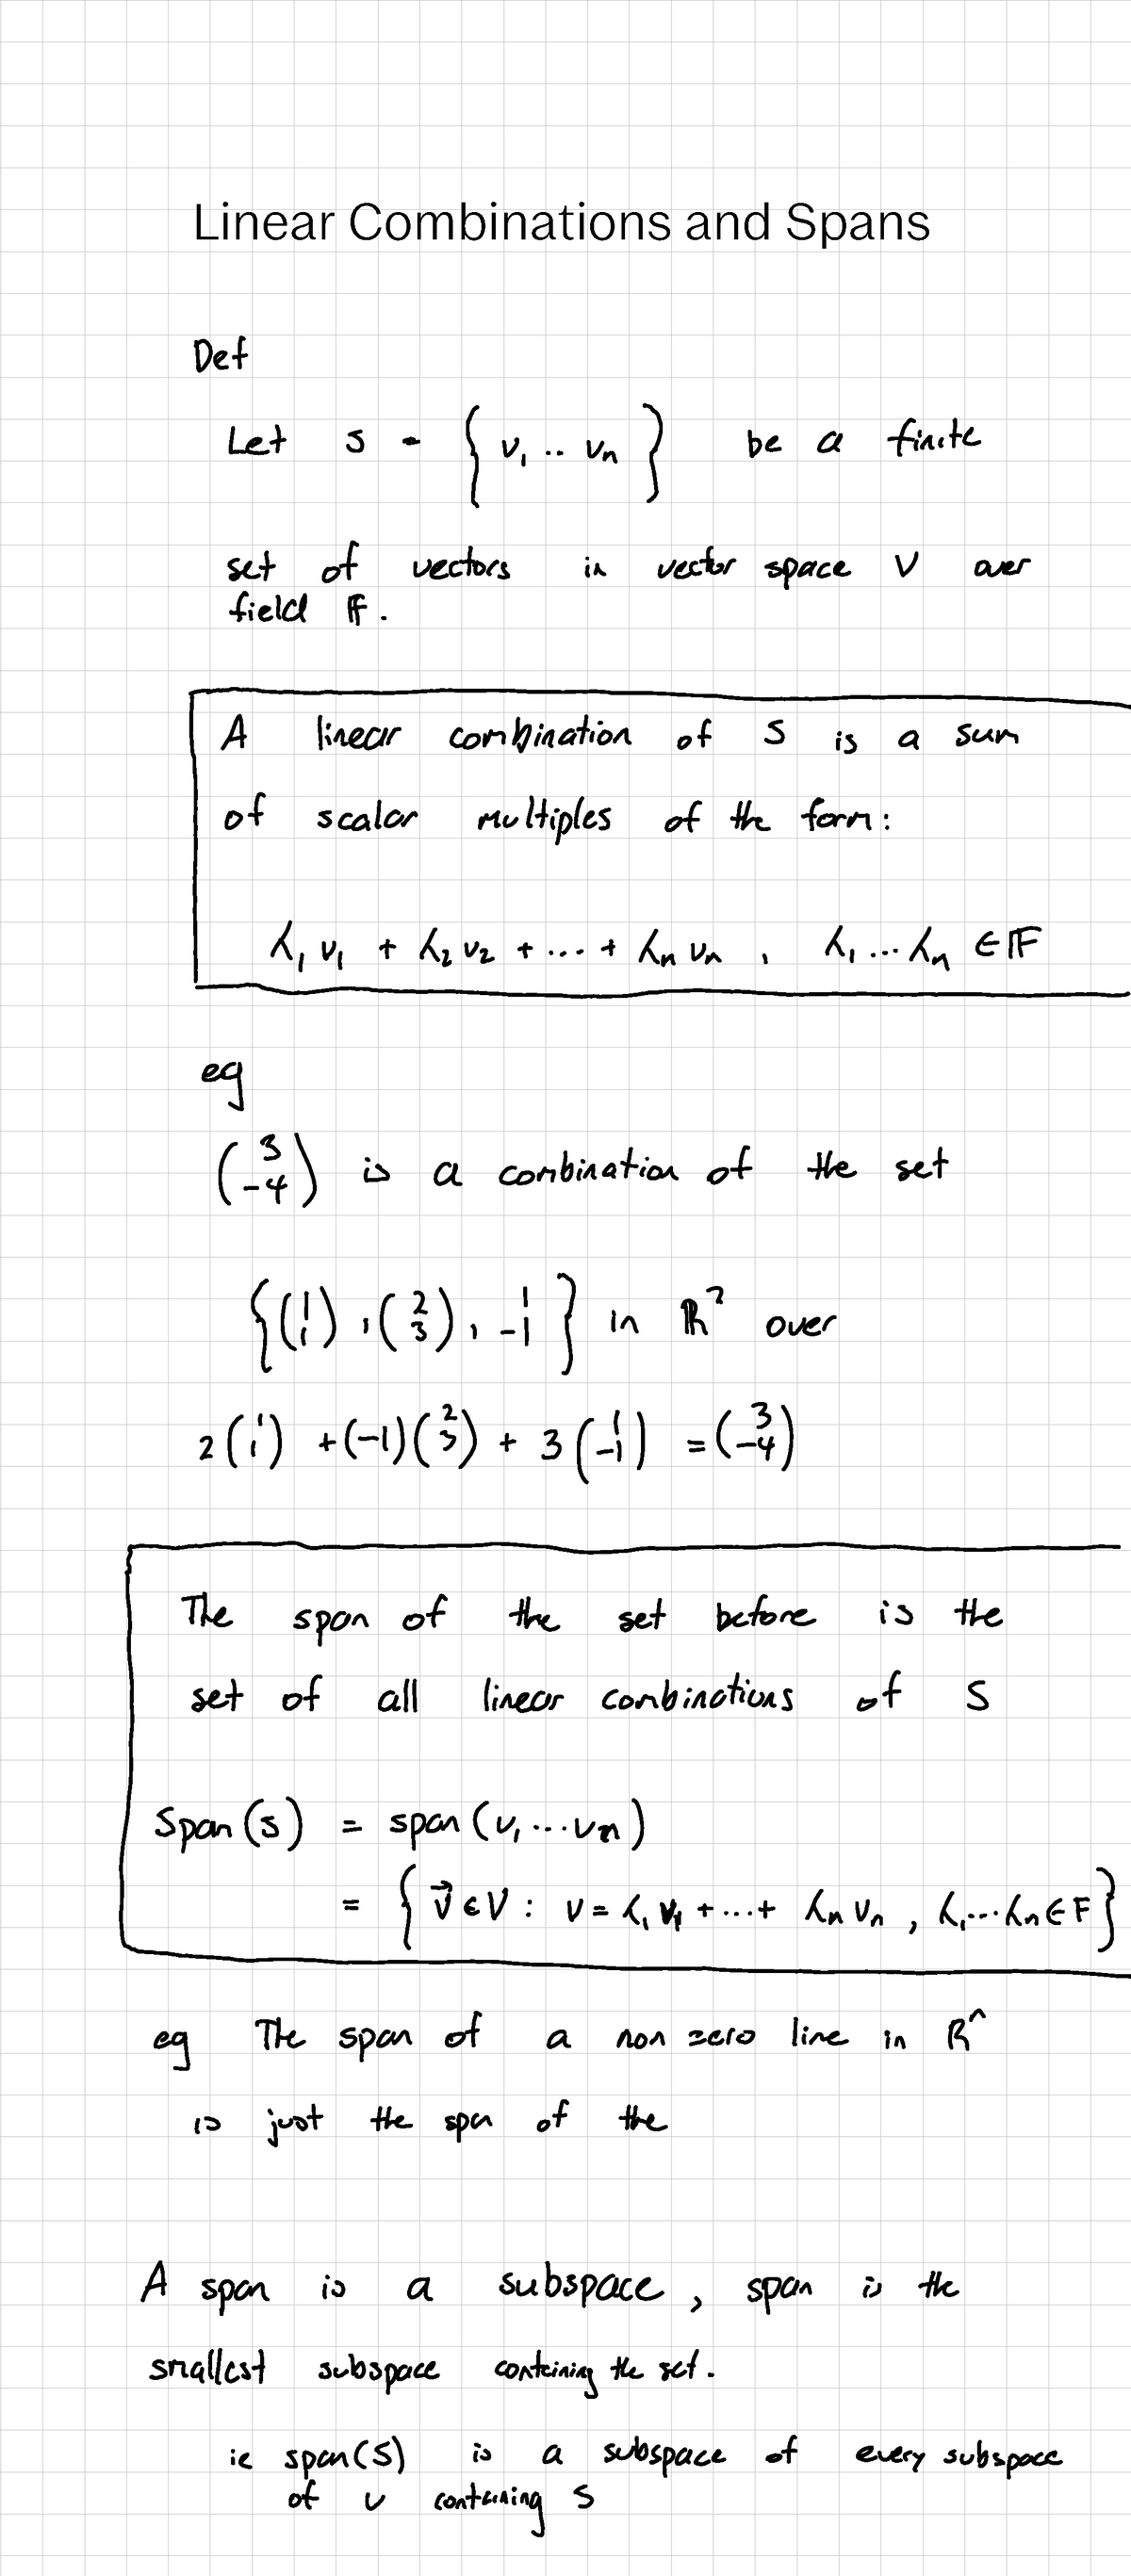 Linear Combinations and Spans
Def
Let S = { v₁ .. vₙ } be a finite
set of vectors in vector space V over
field 𝔽.
A linear combination of S is a sum
of scalar multiples of the form:
λ₁ v₁ + λ₂ v₂ + ... + λₙ vₙ , λ₁ ... λₙ ∈ 𝔽
eg
(3 -4) is a combination of the set
{ (1 1) , (2 3) , 1 -1 } in ℝ² over
2 (1 1) + (-1) (2 3) + 3 (1 -1) = (3 -4)
The span of the set before is the
set of all linear combinations of S
Span(S) = span(v₁ ... vₙ)
= { v⃗ ∈ V : v = λ₁ v₁ + ... + λₙ vₙ , λ₁ ... λₙ ∈ F }
eg The span of a non zero line in ℝⁿ
is just the span of the
A span is a subspace, span is the
smallest subspace containing the set.
ie span(S) is a subspace of every subspace
of V containing S